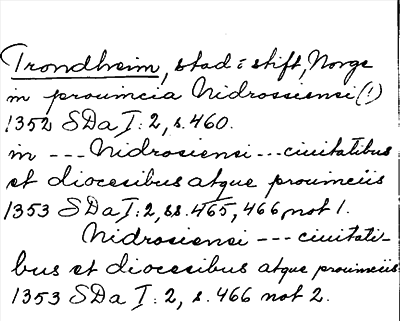 Trondheim, stad: stift, Norge
in prouincia Nidrossiensi (!)
1352 SDa I: 2, s. 460.
in --- Nidrosiensi --- ciuitatibus
et diocesibus atque prouinciis
1353 SDa I: 2, ss. 465, 466 not 1.
Nidrosiensi --- ciuitati-
bus et diocesibus atque prouinciis
1353 SDa I: 2, s. 466 not 2.